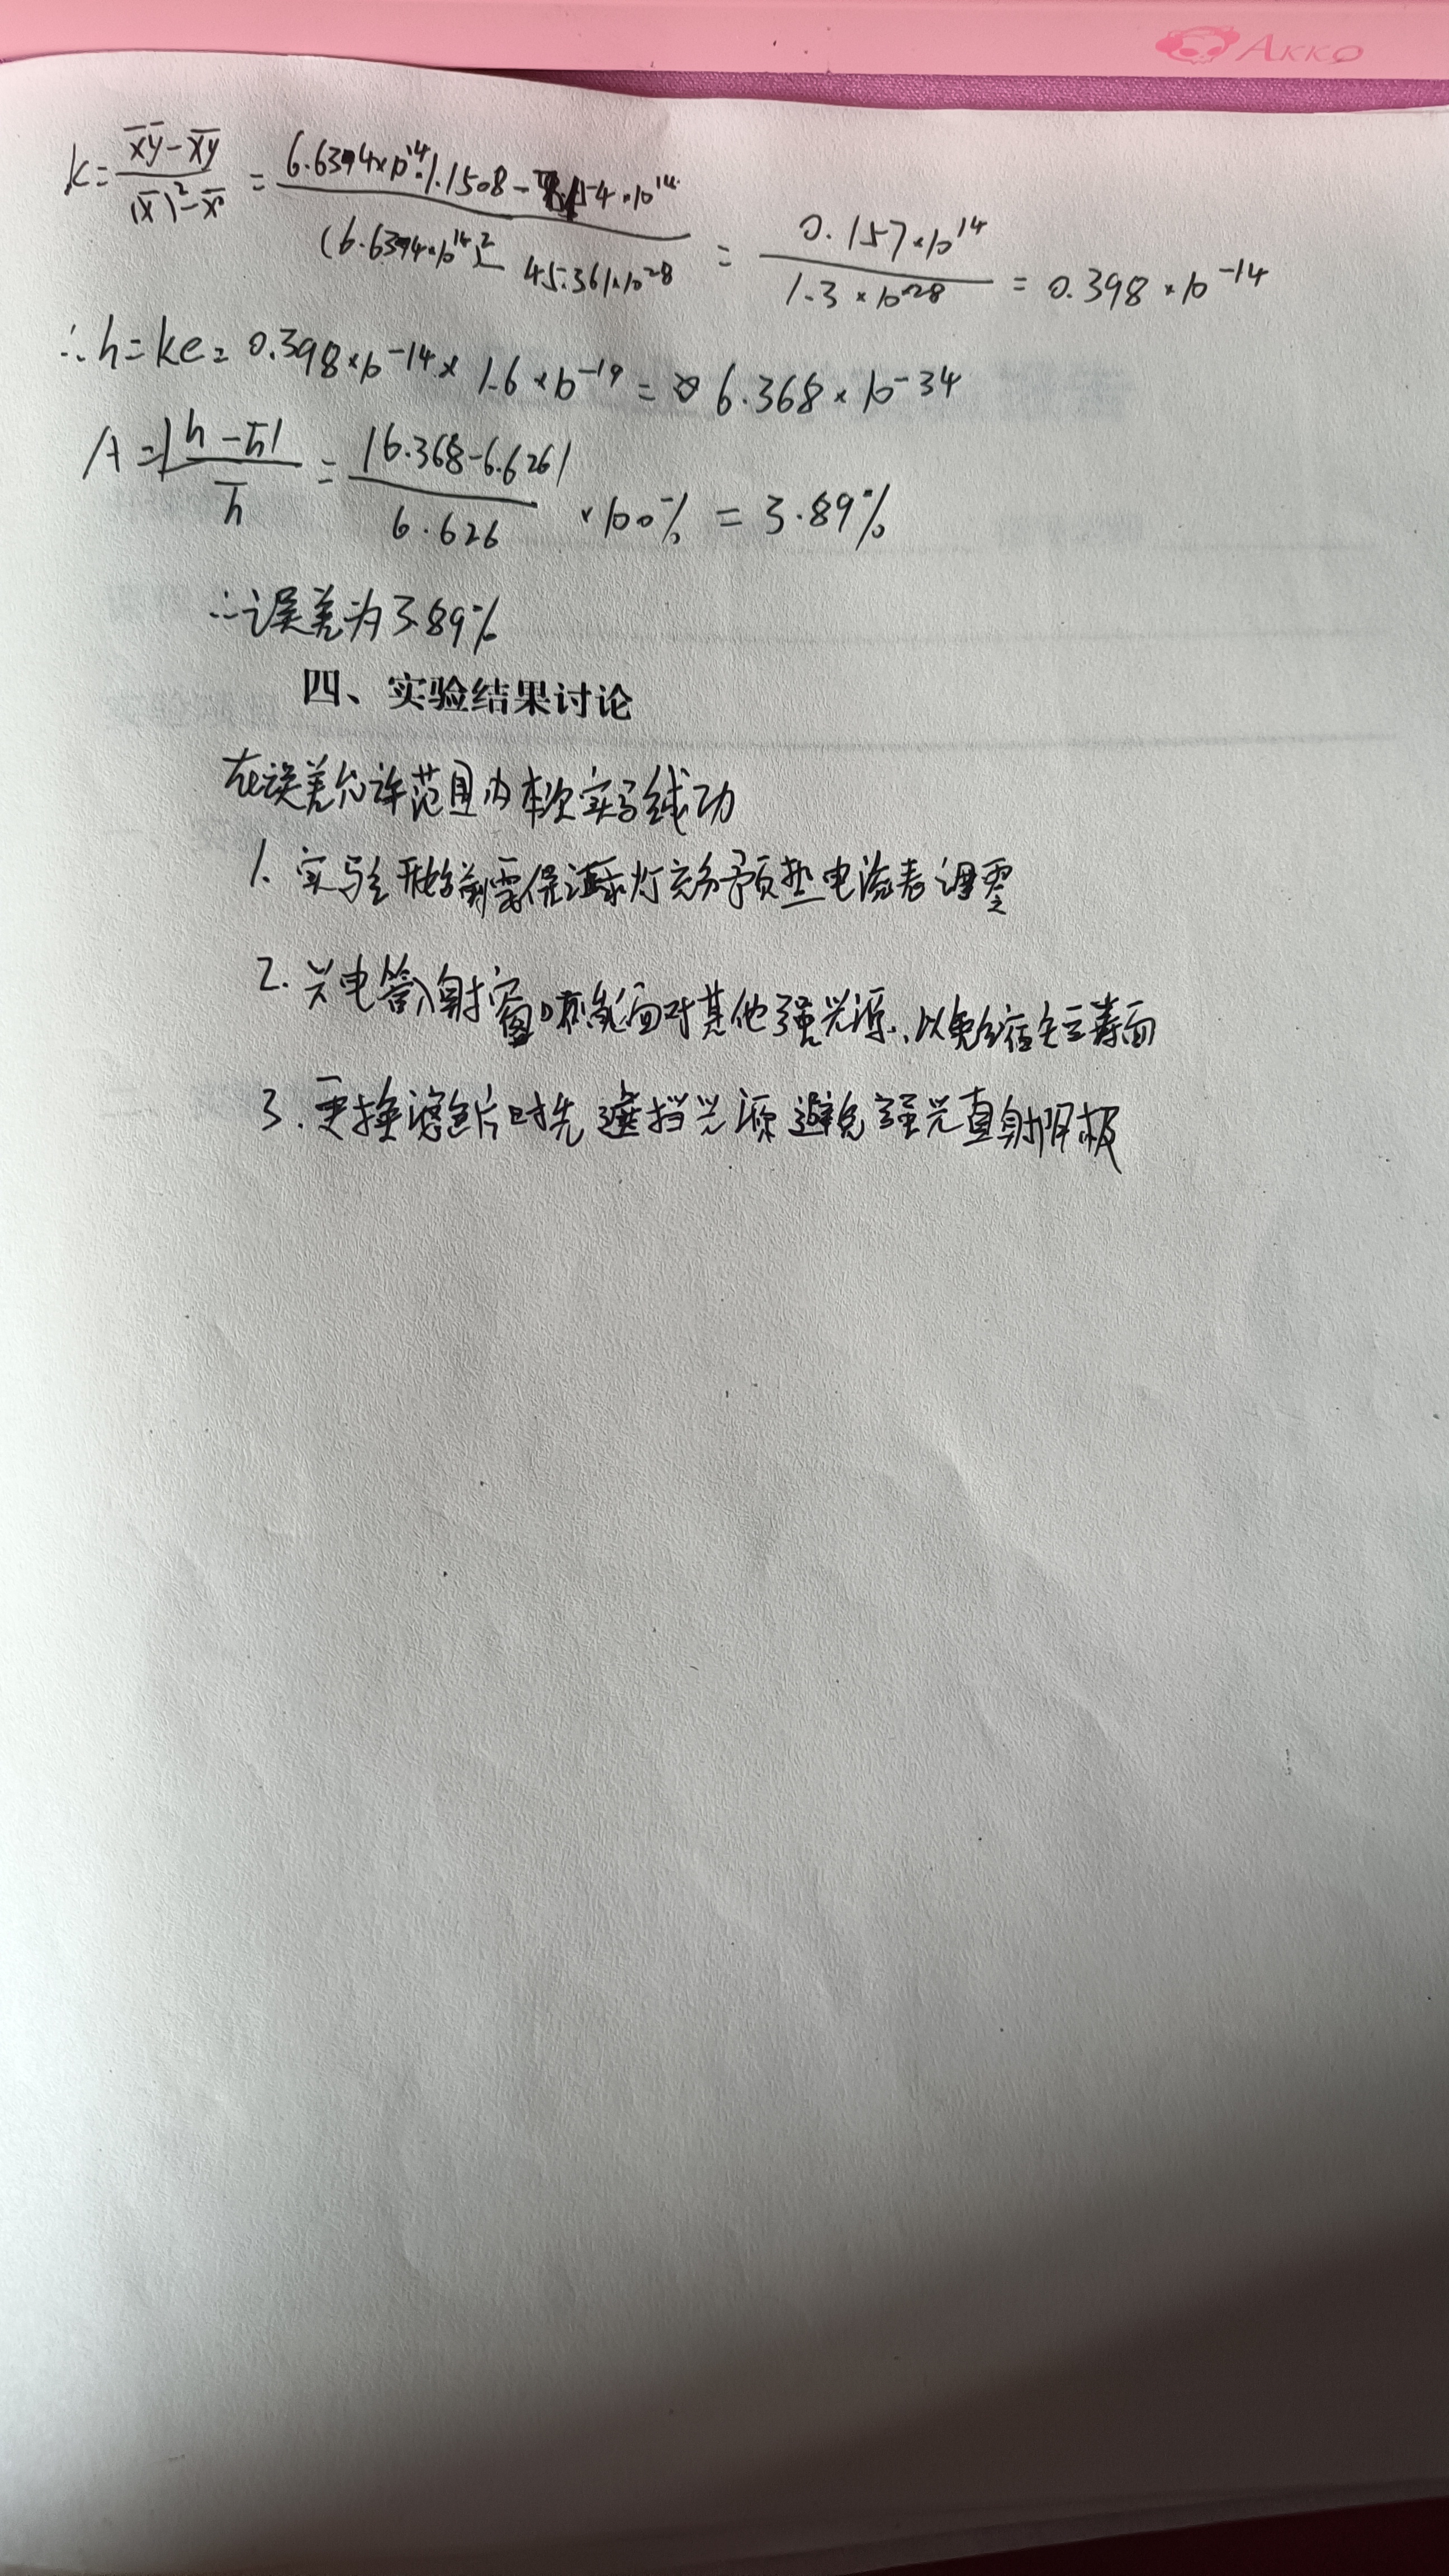 AKKO
k = (x̄ȳ - x̄y̅)/((x̄)² - x̄²) = (6.6394×10¹⁴·1.1508 - 10¹⁴)/((6.6394×10¹⁴)² - 45.361×10²⁸) = 0.157×10¹⁴/1.3×10²⁸ = 0.398×10⁻¹⁴
∴ h = ke = 0.398×10⁻¹⁴ × 1.6×10⁻¹⁹ = 6.368×10⁻³⁴
A = |h - h̄|/h̄ = |6.368-6.626|/6.626 ×100% = 3.89%
∴误差为3.89%
四、实验结果讨论
在误差允许范围内本次实验成功
1. 实验开始前需保证汞灯充分预热电流表调零
2. 光电管入射窗口不能面对其他强光源、以免缩短寿面
3. 更换滤色片时先遮挡光源避免强光直射阴极